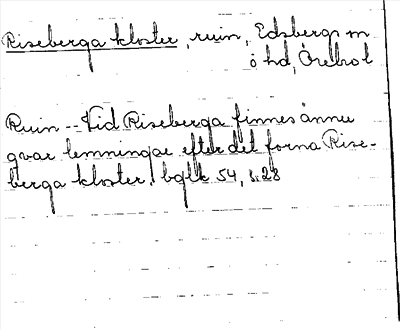 Riseberga kloster, ruin, Edsbergs sn
ö hd, Örebro l
Ruin -- Vid Riseberga finnes ännu
qvar lemningar efter det forna Rise-
berga kloster. bglk 54, s. 28